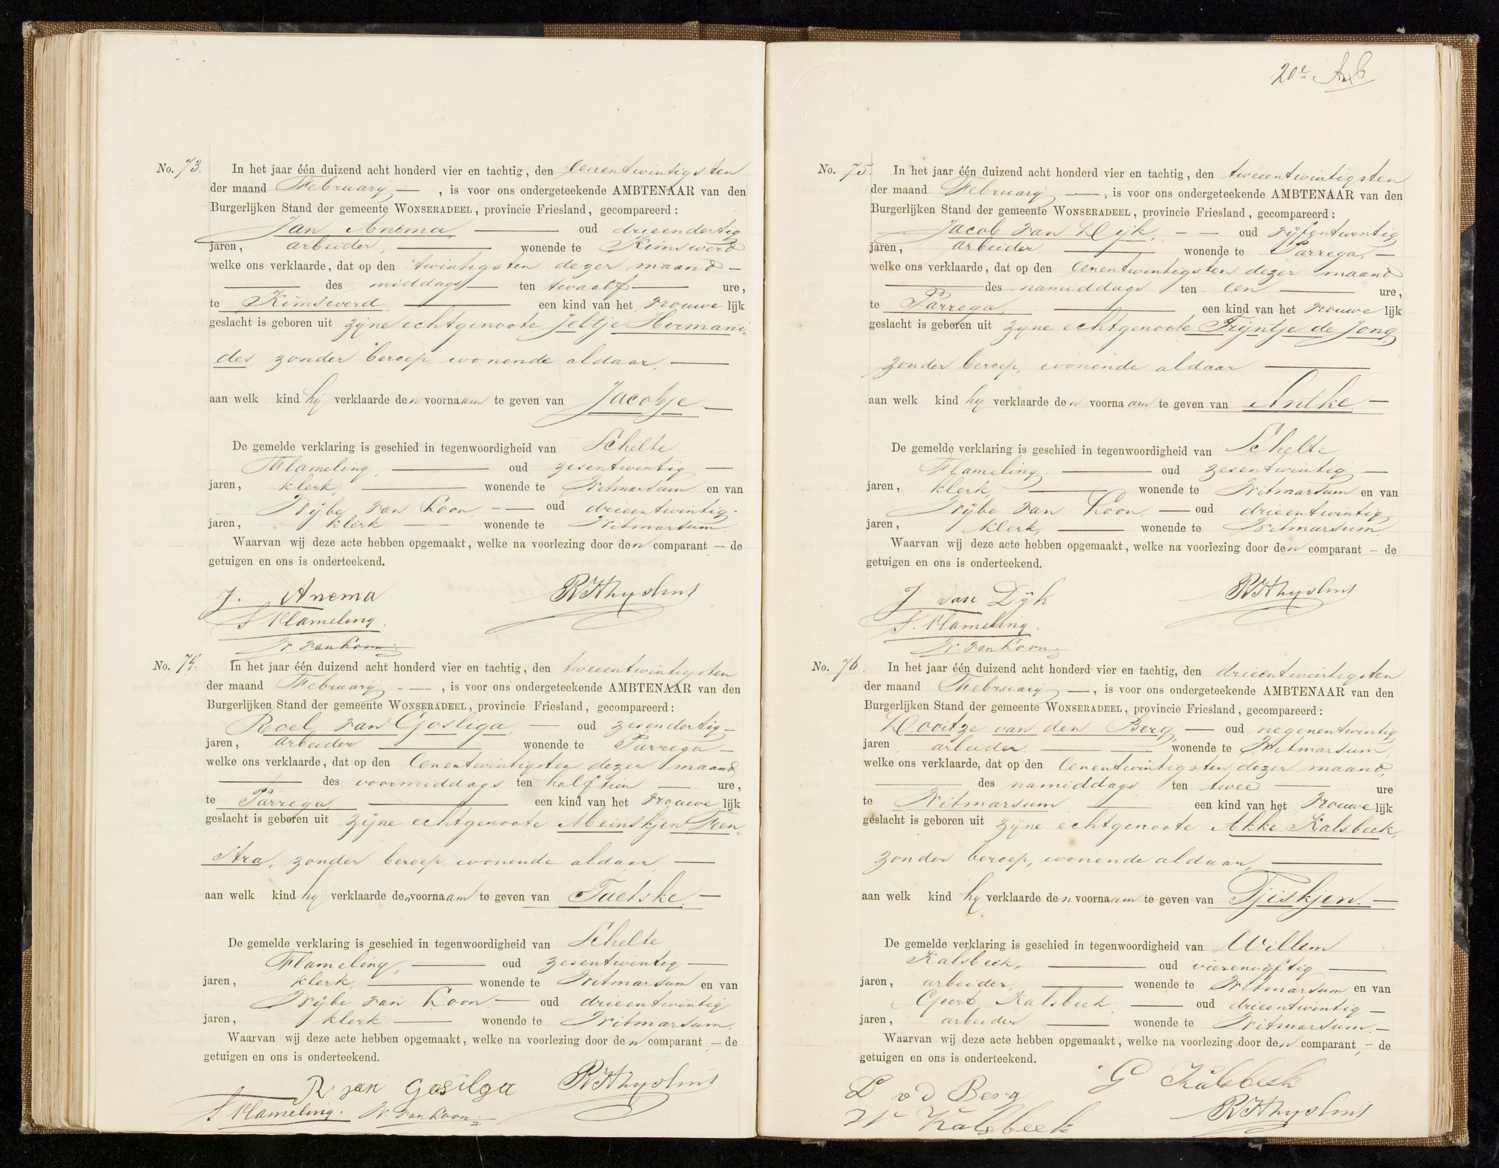 No. 73. In het jaar één duizend acht honderd vier en tachtig, den eenentwintigsten
der maand February —, is voor ons ondergeteekende AMBTENAAR van den
Burgerlijken Stand der gemeente WONSERADEEL, provincie Friesland, gecompareerd:
Jan Anema — oud drieendertig
jaren, arbeider, — wonende te Kimswerd
welke ons verklaarde, dat op den twintigsten dezer maand —
— des middags — ten twaalf — ure,
te Kimswerd — een kind van het vrouwelijk
geslacht is geboren uit zijne echtgenoote Jeltje Hormani-
des, zonder beroep wonende aldaar, —
aan welk kind hij verklaarde den voornaam te geven van Jacobje —
De gemelde verklaring is geschied in tegenwoordigheid van Schelte
Flameling, — oud zesentwintig —
jaren, klerk, — wonende te Witmarsum en van
Wijbe van Loon — oud drieentwintig
jaren, klerk — wonende te Witmarsum.
Waarvan wij deze acte hebben opgemaakt, welke na voorlezing door den comparant — de
getuigen en ons is onderteekend.
J. Anema
S. Flameling.
W. van Loon
No. 74. In het jaar één duizend acht honderd vier en tachtig, den tweeentwintigsten
der maand February —, is voor ons ondergeteekende AMBTENAAR van den
Burgerlijken Stand der gemeente WONSERADEEL, provincie Friesland, gecompareerd:
Roel van Gosliga — oud zesendertig —
jaren, arbeider — wonende te Parrega —
welke ons verklaarde, dat op den eenentwintigsten dezer maand,
— des voormiddags ten half tien — ure,
te Parrega — een kind van het vrouwelijk
geslacht is geboren uit zijne echtgenoote Meinskjen Feen-
stra, zonder beroep wonende aldaar, —
aan welk kind hij verklaarde den voornaam te geven van Taetske. —
De gemelde verklaring is geschied in tegenwoordigheid van Schelte
Flameling, — oud zesentwintig —
jaren, klerk, — wonende te Witmarsum en van
Wijbe van Loon — oud drieentwintig
jaren, klerk — wonende te Witmarsum.
Waarvan wij deze acte hebben opgemaakt, welke na voorlezing door den comparant, — de
getuigen en ons is onderteekend.
R van Gosliga
S. Flameling. W. van Loon
20e
No. 75. In het jaar één duizend acht honderd vier en tachtig, den tweeentwintigsten
der maand February —, is voor ons ondergeteekende AMBTENAAR van den
Burgerlijken Stand der gemeente WONSERADEEL, provincie Friesland, gecompareerd:
Jacob van Dijk, — oud vijfentwintig
jaren, arbeider — wonende te Parrega, —
welke ons verklaarde, dat op den eenentwintigsten dezer maand
— des namiddags ten een — ure,
te Parrega, — een kind van het vrouwelijk
geslacht is geboren uit zijne echtgenoote Trijntje de Jong
zonder beroep, wonende aldaar —
aan welk kind hij verklaarde den voornaam te geven van Antke —
De gemelde verklaring is geschied in tegenwoordigheid van Schelte
Flameling — oud zesentwintig —
jaren, klerk, — wonende te Witmarsum en van
Wijbe van Loon, — oud drieentwintig
jaren, klerk, — wonende te Witmarsum.
Waarvan wij deze acte hebben opgemaakt, welke na voorlezing door den comparant — de
getuigen en ons is onderteekend.
J van Dijk
S. Flameling.
W. van Loon
No. 76. In het jaar één duizend acht honderd vier en tachtig, den drieentwintigsten
der maand February —, is voor ons ondergeteekende AMBTENAAR van den
Burgerlijken Stand der gemeente WONSERADEEL, provincie Friesland, gecompareerd:
van den Berg, — oud negenentwintig
jaren arbeider — wonende te Witmarsum
welke ons verklaarde, dat op den eenentwintigsten dezer maand,
— des namiddags ten twee — ure
te Witmarsum — een kind van het vrouwelijk
geslacht is geboren uit zijne echtgenoote Akke Kalsbeek,
zonder beroep, wonende aldaar, —
aan welk kind hij verklaarde den voornaam te geven van Tjiskjen. —
De gemelde verklaring is geschied in tegenwoordigheid van Willem
Kalsbeek, — oud vierenvijftig —
jaren, arbeider, — wonende te Witmarsum en van
Gjert Kalsbeek, — oud drieentwintig —
jaren, arbeider — wonende te Witmarsum. —
Waarvan wij deze acte hebben opgemaakt, welke na voorlezing door den comparant, — de
getuigen en ons is onderteekend.
D v d Berg G Kalsbeek
W Kalsbeek